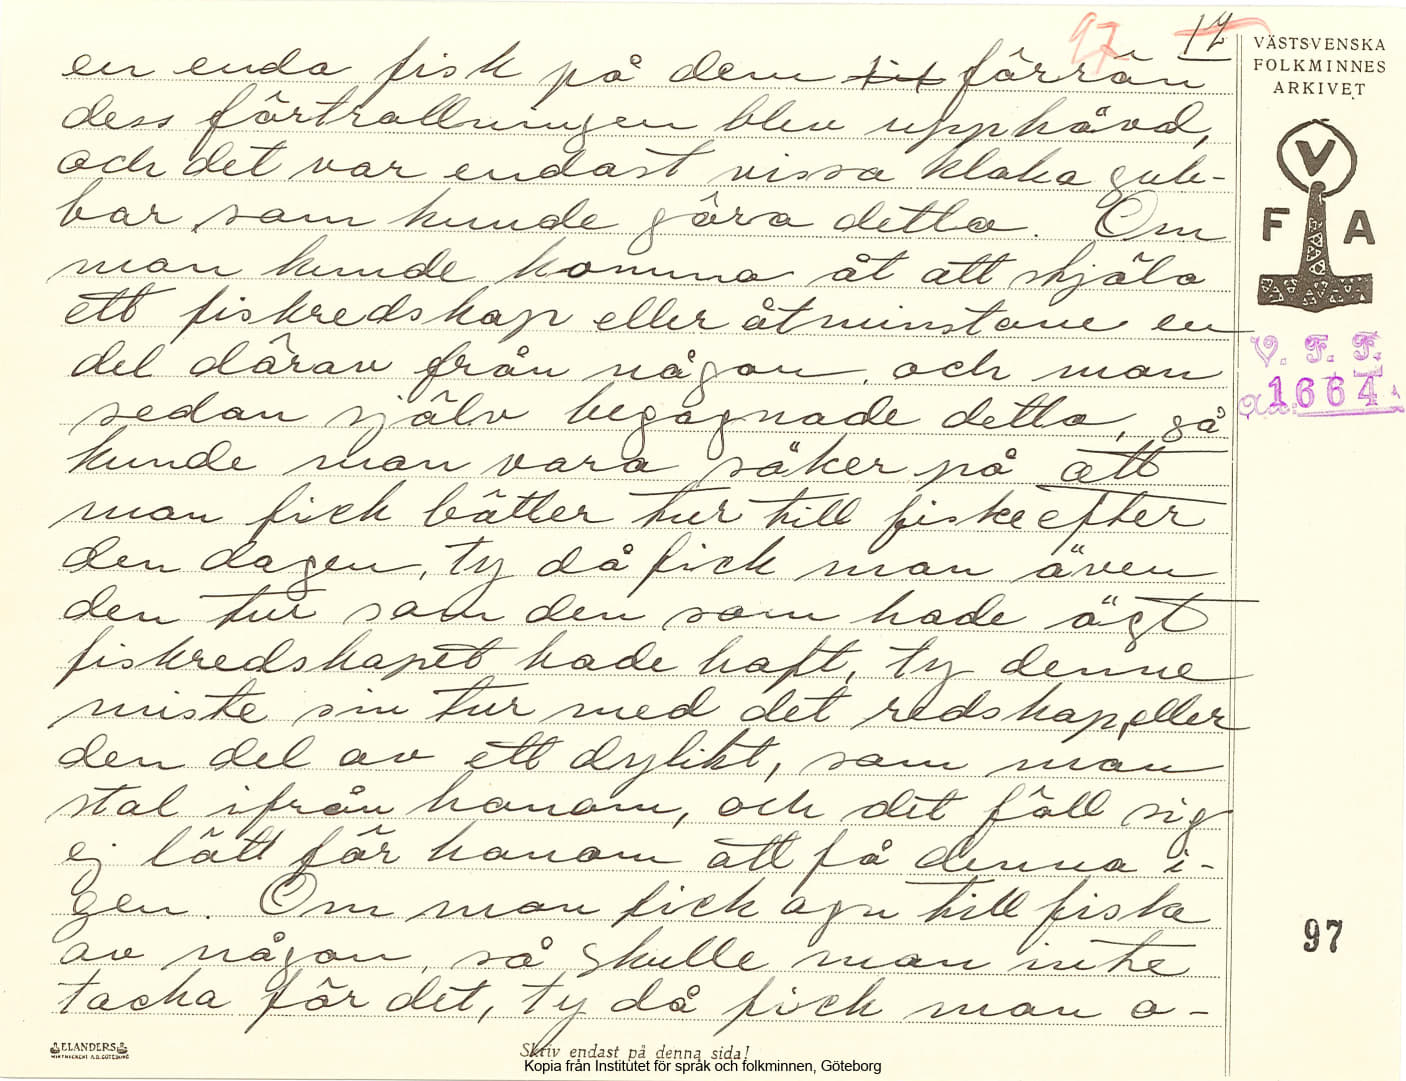 97 17
VÄSTSVENSKA
FOLKMINNES
ARKIVET
V
F A
V. F. F.
1664
97
en enda fisk på dem förrän
dess förtrollningen blev upphävd,
och det var endast vissa kloka gub-
bar som kunde göra detta. Om
man kunde komma åt att stjäla
ett fiskredskap eller åtminstone en
del därav från någon, och man
sedan själv begagnade detta, så
kunde man vara säker på att
man fick bätter tur till fiske efter
den dagen, ty då fick man även
den tur som den som hade ägt
fiskredskapet hade haft, ty denne
miste sin tur med det redskap, eller
den del av ett dylikt, som man
stal ifrån honom, och det föll sig
ej lätt för honom att få denna i-
gen. Om man fick agn till fiske
av någon, så skulle man inte
tacka för det, ty då fick man o-
ELANDERS
Skriv endast på denna sida!
Kopia från Institutet för språk och folkminnen, Göteborg